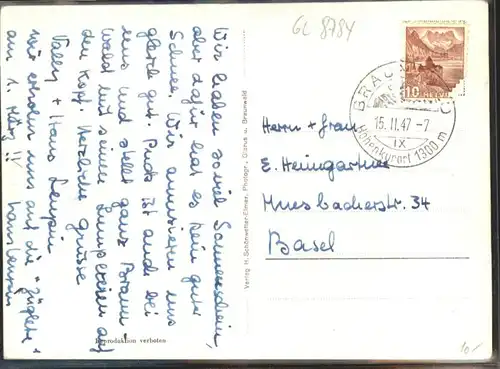 GL 8784
Wir haben so viel Sonnenschein,
aber dafür hat es kein guter
Schnee. Wir amüsieren uns
gleich gut. Puck ist auch bei
uns und stellt ganz Braun-
wald mit seinen Lumpereien auf
den Kopf. Herzliche Grüsse
Vally + Hans
wir freuen uns auf die "Züglete"
am 1. März !!
Reproduktion verboten
Verlag H. Schönwetter-Elmer, Photogr., Glarus u. Braunwald
HELVETIA
10
BRAUNWALD
15.II.47-7
IX
Höhenkurort 1300 m
Herrn + Frau
E. Heimgartner
Muesbacherstr. 34
Basel
10.-